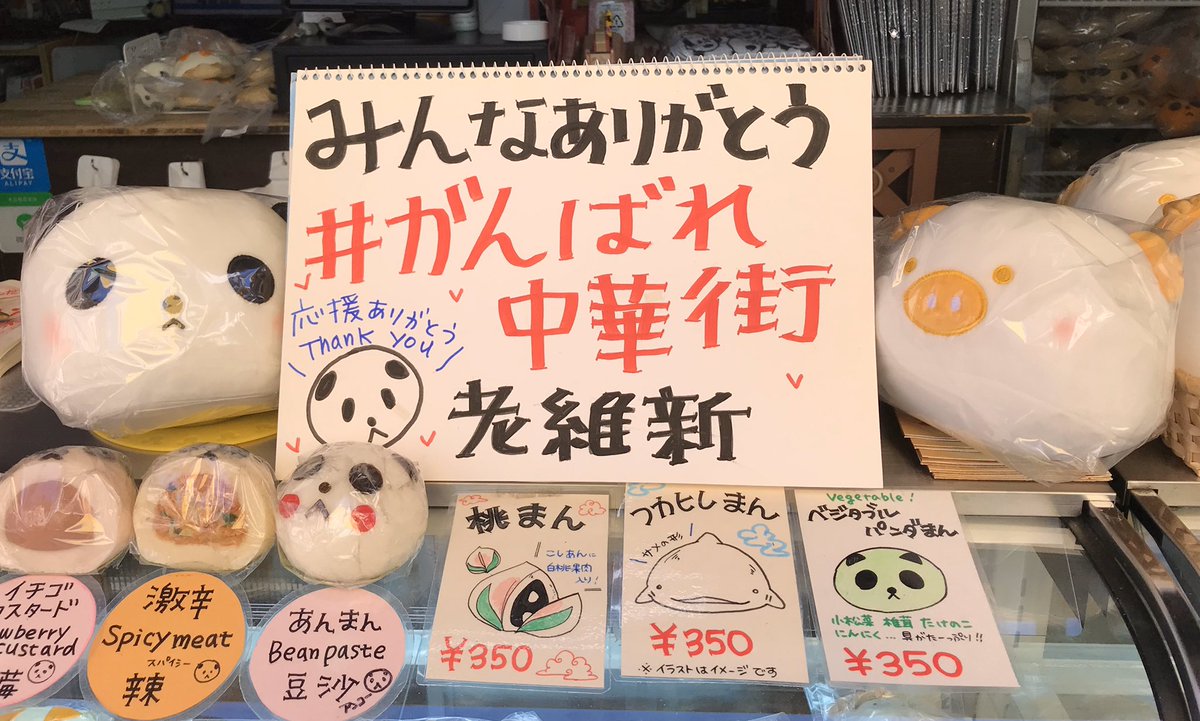 みんなありがとう
#がんばれ
中華街
応援ありがとう
Thank you
老維新
支付宝
ALIPAY
イチゴ
カスタード
wberry
custard
莓
激辛
Spicy meat
スパイシー
辣
あんまん
Bean paste
豆沙
桃まん
こしあんに
白桃果肉
入り!
¥350
フカヒレまん
サメの形
¥350
※イラストはイメージです
Vegetable!
ベジタブル
パンダまん
小松菜 椎茸 たけのこ
にんにく…具がたっぷり!!
¥350